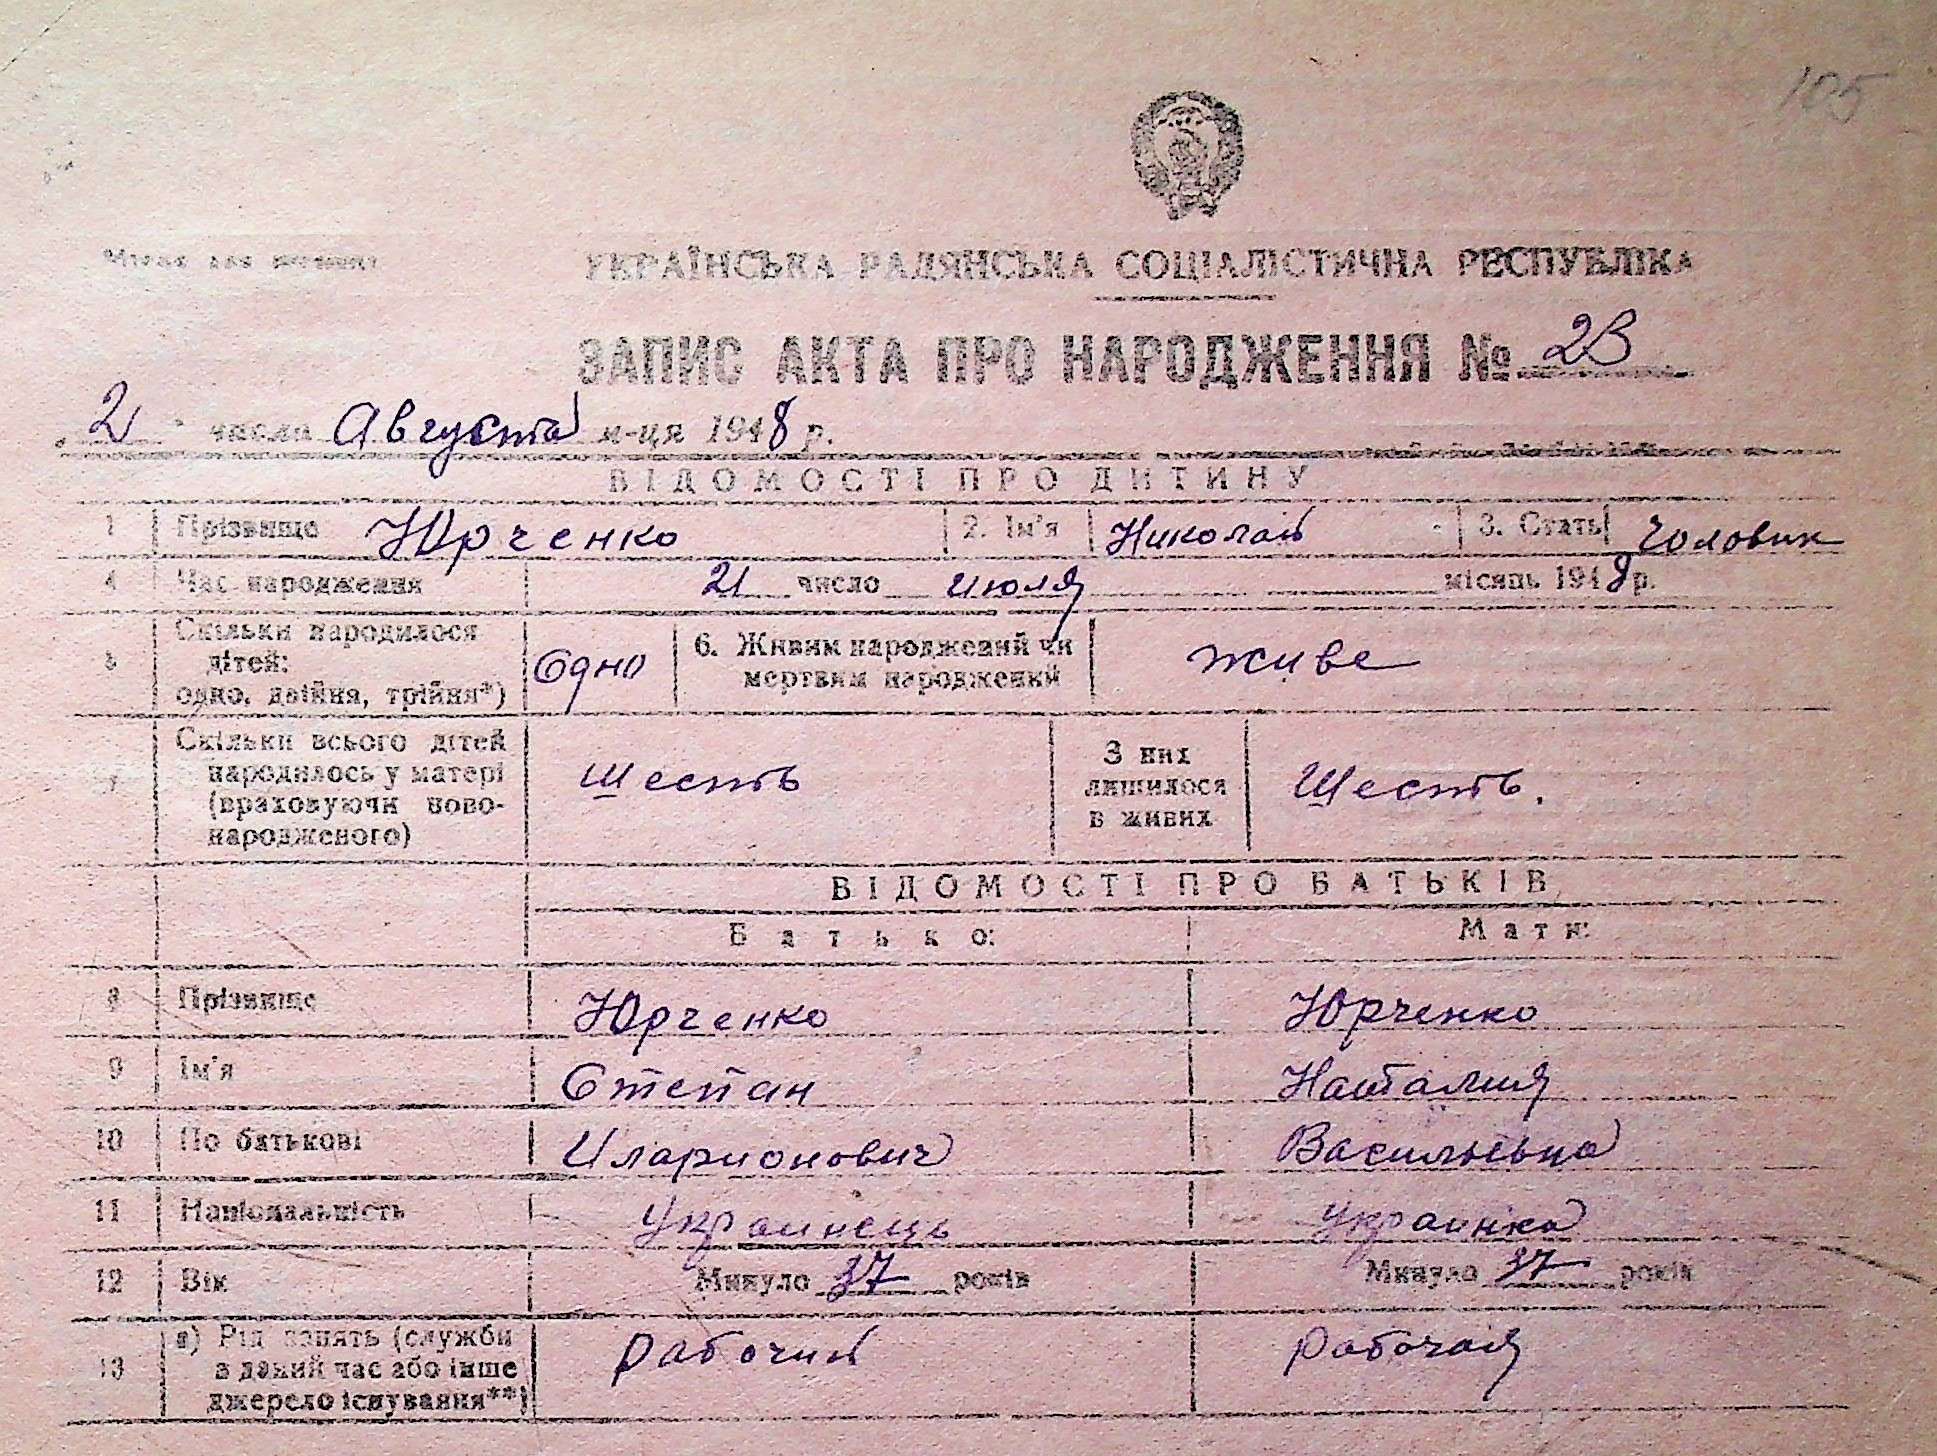 105
УКРАЇНСЬКА РАДЯНСЬКА СОЦІАЛІСТИЧНА РЕСПУБЛІКА
ЗАПИС АКТА ПРО НАРОДЖЕННЯ №
2 числа Августа м-ця 1948 р.
ВІДОМОСТІ ПРО ДИТИНУ
1 Прізвище Юрченко 2. Ім'я Николай 3. Стать Чоловик
4 Час народження 21 число июля місяць 1948 р.
5 Скільки народилося
дітей:
одно, двійня, трійня*) Одно 6. Живим народжений чи
мертвим народжений живе
7 Скільки всього дітей
народилось у матері
(враховуючи ново-
народженого) Шесть З них
лишилося
в живих Шесть.
ВІДОМОСТІ ПРО БАТЬКІВ
Батько: Мати:
8 Прізвище Юрченко Юрченко
9 Ім'я Степан Наталия
10 По батькові Иларионович Васильевна
11 Національність Украинець Украинка
12 Вік Минуло 37 років Минуло 37 років
13 а) Рід занять (служби
в даний час або інше
джерело існування**) рабочий рабочая